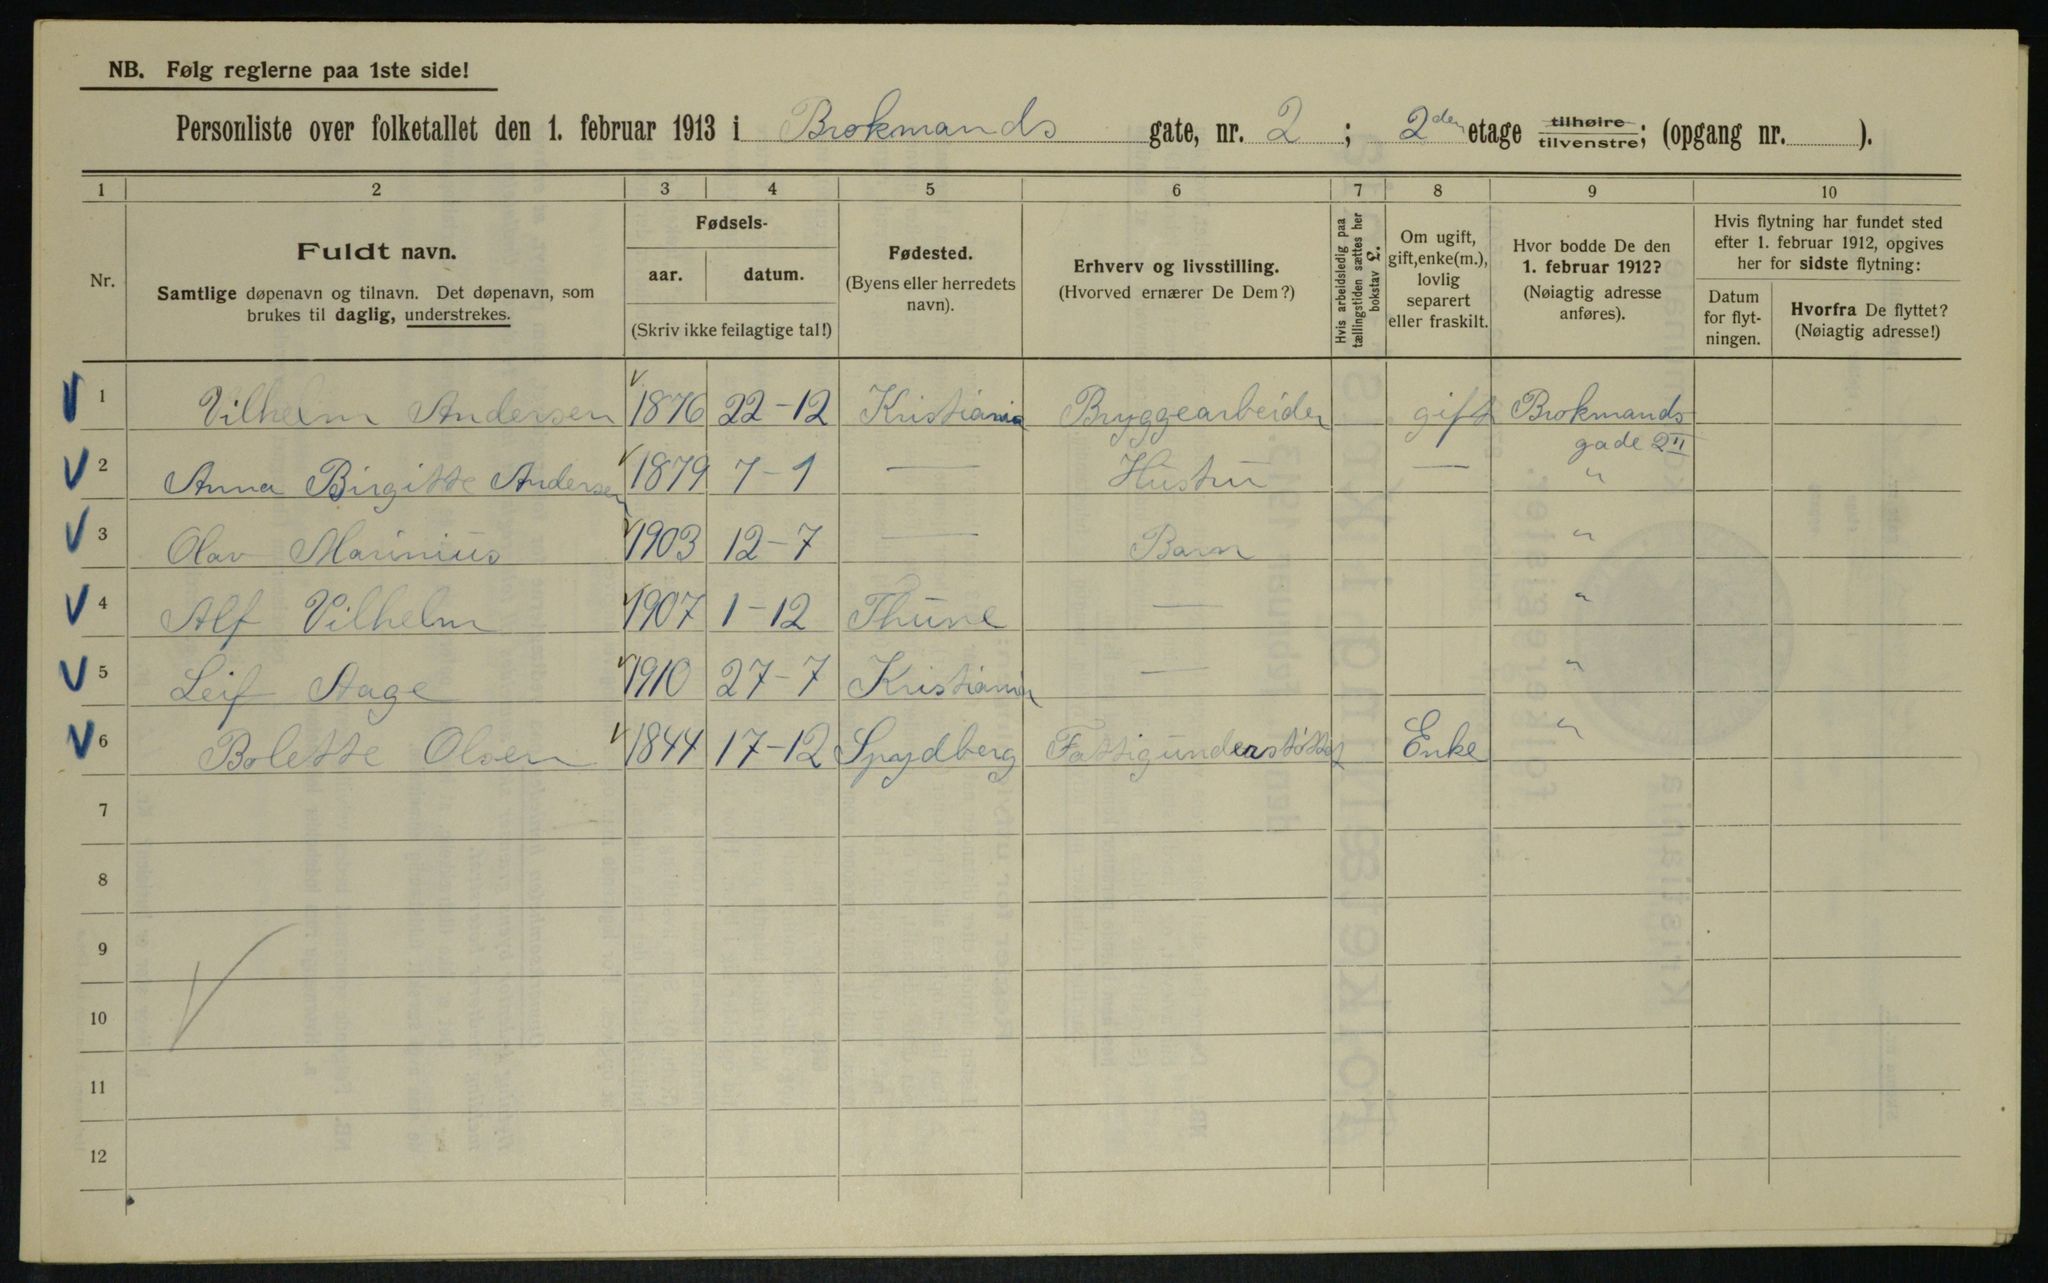 NB. Følg reglerne paa 1ste side!
Personliste over folketallet den 1. februar 1913 i Brokmands gate, nr. 2 ; 2den etage tilhøire tilvenstre; (opgang nr. ).
1 2 3 4 5 6 7 8 9 10
Nr.
Fuldt navn.
Samtlige døpenavn og tilnavn. Det døpenavn, som
brukes til daglig, understrekes.
Fødsels-
aar. datum.
(Skriv ikke feilagtige tal!)
Fødested.
(Byens eller herredets
navn).
Erhverv og livsstilling.
(Hvorved ernærer De Dem?)
Hvis arbeidsledig paa
tællingstiden sættes her
bokstav L.
Om ugift,
gift, enke(m.),
lovlig
separert
eller fraskilt.
Hvor bodde De den
1. februar 1912?
(Nøiagtig adresse
anføres).
Hvis flytning har fundet sted
efter 1. februar 1912, opgives
her for sidste flytning:
Datum
for flyt-
ningen.
Hvorfra De flyttet?
(Nøiagtig adresse!)
1 Vilhelm Andersen 1876 22-12 Kristiania Bryggearbeider gift Brokmands
gade 2 II
2 Anna Birgitte Andersen 1879 7-1 — Hustru — "
3 Olav Marinius 1903 12-7 — Barn "
4 Alf Vilhelm 1907 1-12 Thune — "
5 Leif Aage 1910 27-7 Kristiania — "
6 Bolette Olsen 1844 17-12 Spydberg Fattigunderstøttet Enke "
7
8
9
10
11
12